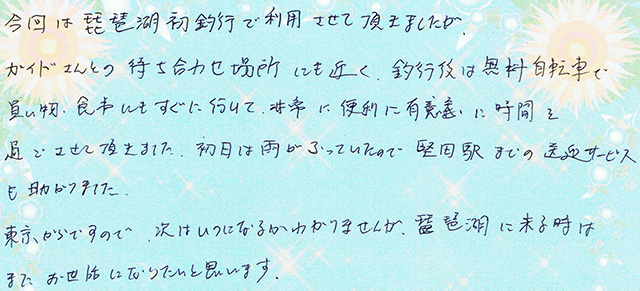 今回は琵琶湖初釣行で利用させて頂きましたが、
ガイドさんとの待ち合わせ場所にも近く、釣行後は無料自転車で
買い物、食事にもすぐに行けて、非常に便利に有意義に時間を
過ごさせて頂きました。初日は雨がふっていたので堅田駅までの送迎サービス
も助かりました。
東京からですので、次はいつになるかわかりませんが、琵琶湖に来る時は
またお世話になりたいと思います。